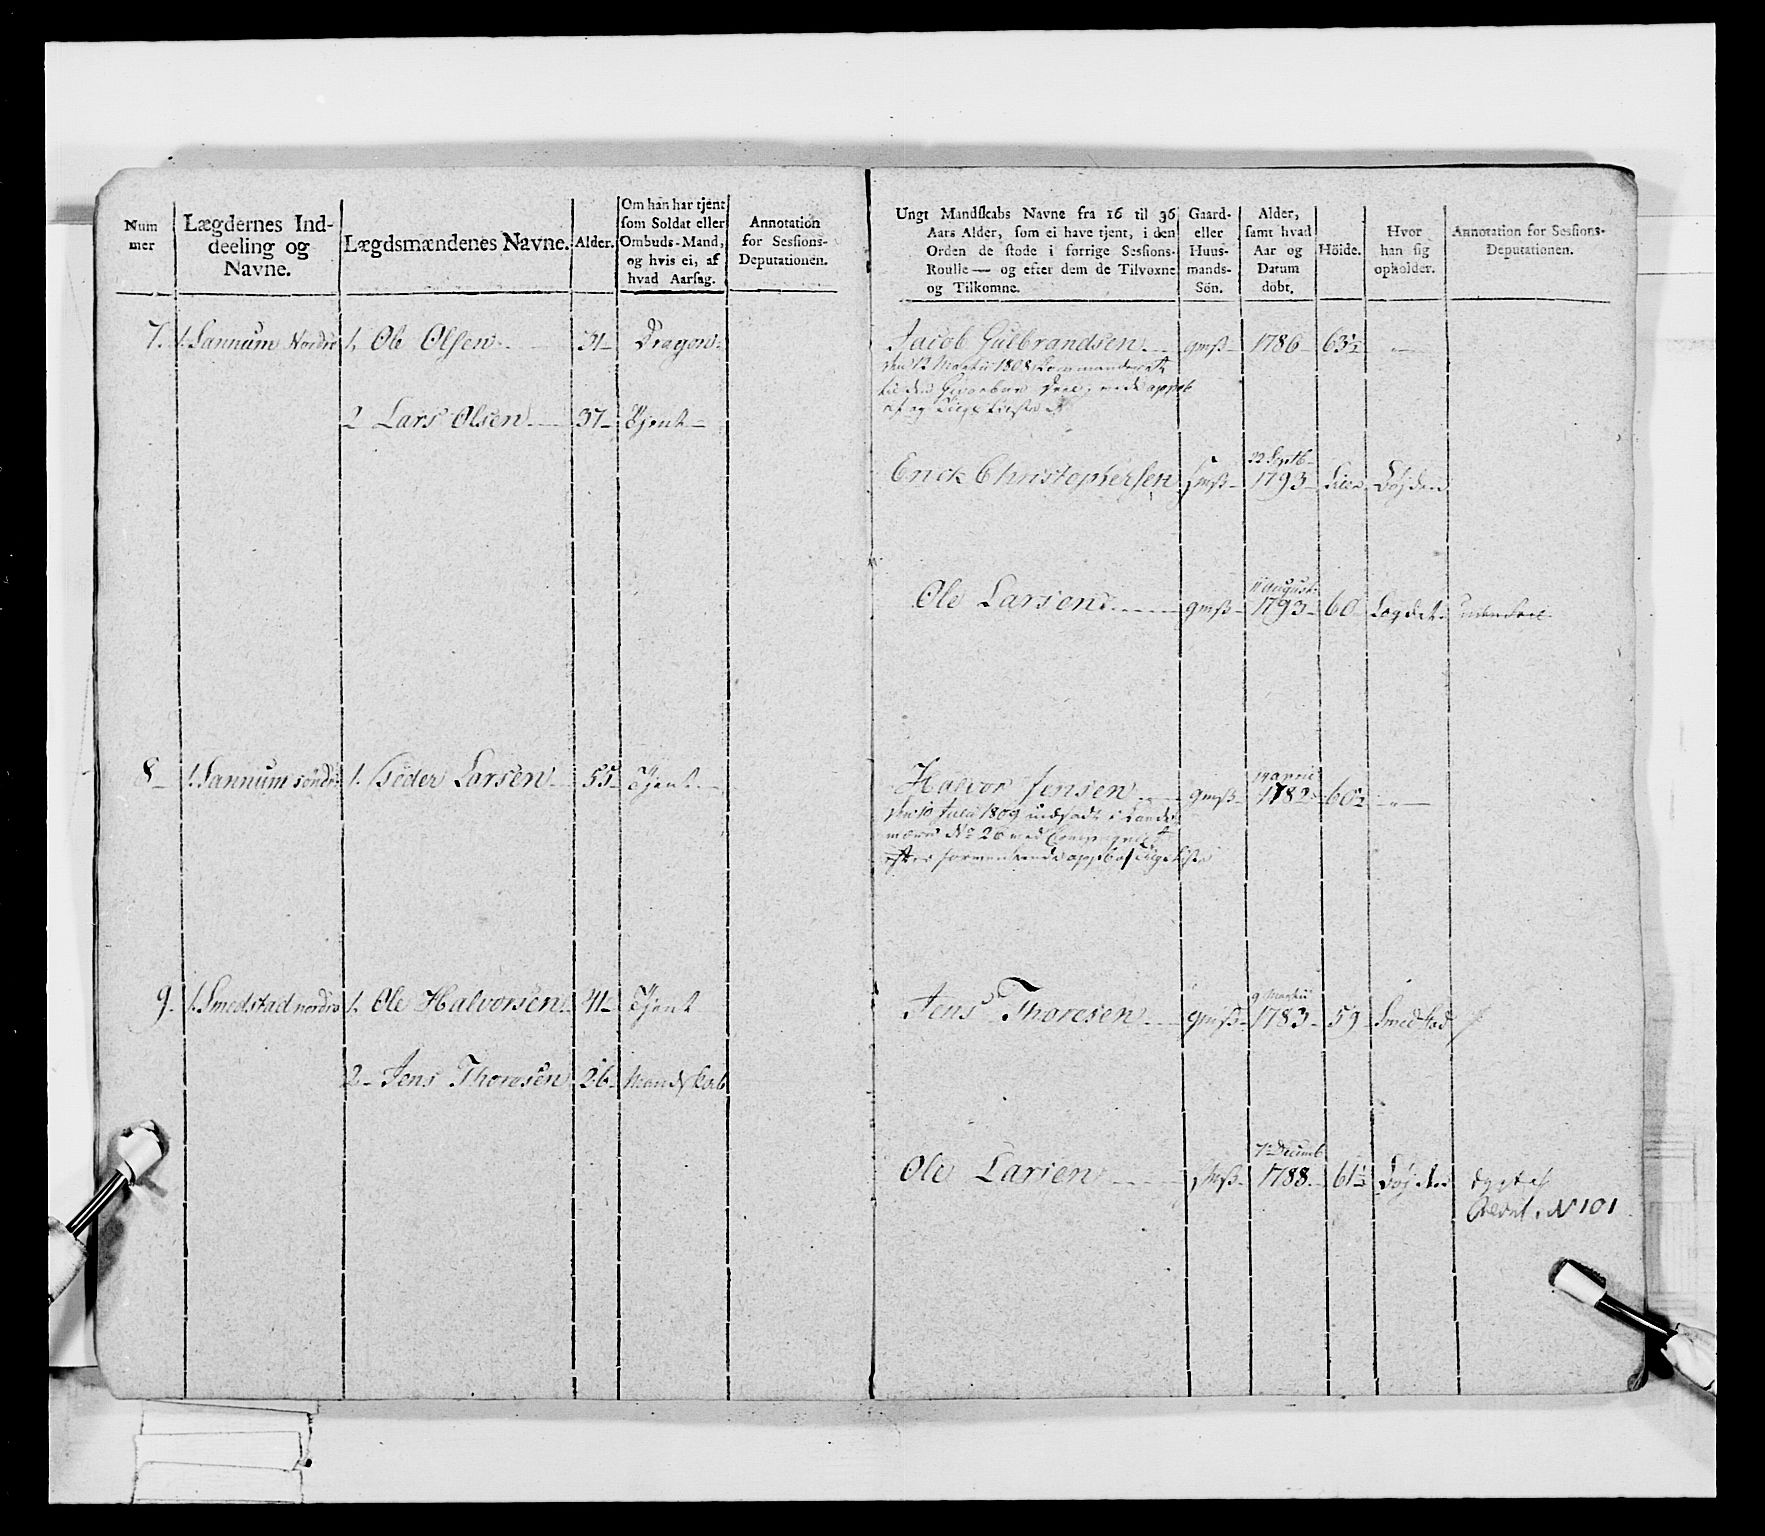 Num
mer
Lægdernes Ind-
deeling og
Navne.
Lægdsmændenes Navne.
Alder.
Om han har tjent
som Soldat eller
Ombuds-Mand,
og hvis ei, af
hvad Aarsag.
Annotation
for Sessions-
Deputationen.
Ungt Mandskabs Navne fra 16 til 36
Aars Alder, som ei have tjent, i den
Orden de stode i forrige Sessions-
Roulle — og efter dem de Tilvoxne
og Tilkomne.
Gaard-
eller
Huus-
mands-
Sön.
Alder,
samt hvad
Aar og
Datum
döbt.
Höide.
Hvor
han sig
opholder.
Annotation for Sessions-
Deputationen.
7. 1. Sannum Nordre 1. Ole Olsen 31 Dragon
2 Lars Olsen 37 Tjent
Jacob Gulbrandsen gmß 1786 63½
den 12 Martii 1808
Erick Christophersen hmß 22 Septb 1793
Ole Larsen gmß 11 August 1793 60 Lægdet
8 1. Sannum söndre 1. Peder Larsen 55 Tjent
Halvor Jensen gmß 19 April 1782 60½
den 10 Julii 1809 indsadt i
No 26 med
9. 1. Smedstad nordre 1. Ole Halvorsen 41 Tjent
2 Jens Thoresen 26 Mandskab
Jens Thoresen gmß 9 Martii 1783 59 Smedstad
Ole Larsen gmß 7 Decemb 1788 61½
No 101